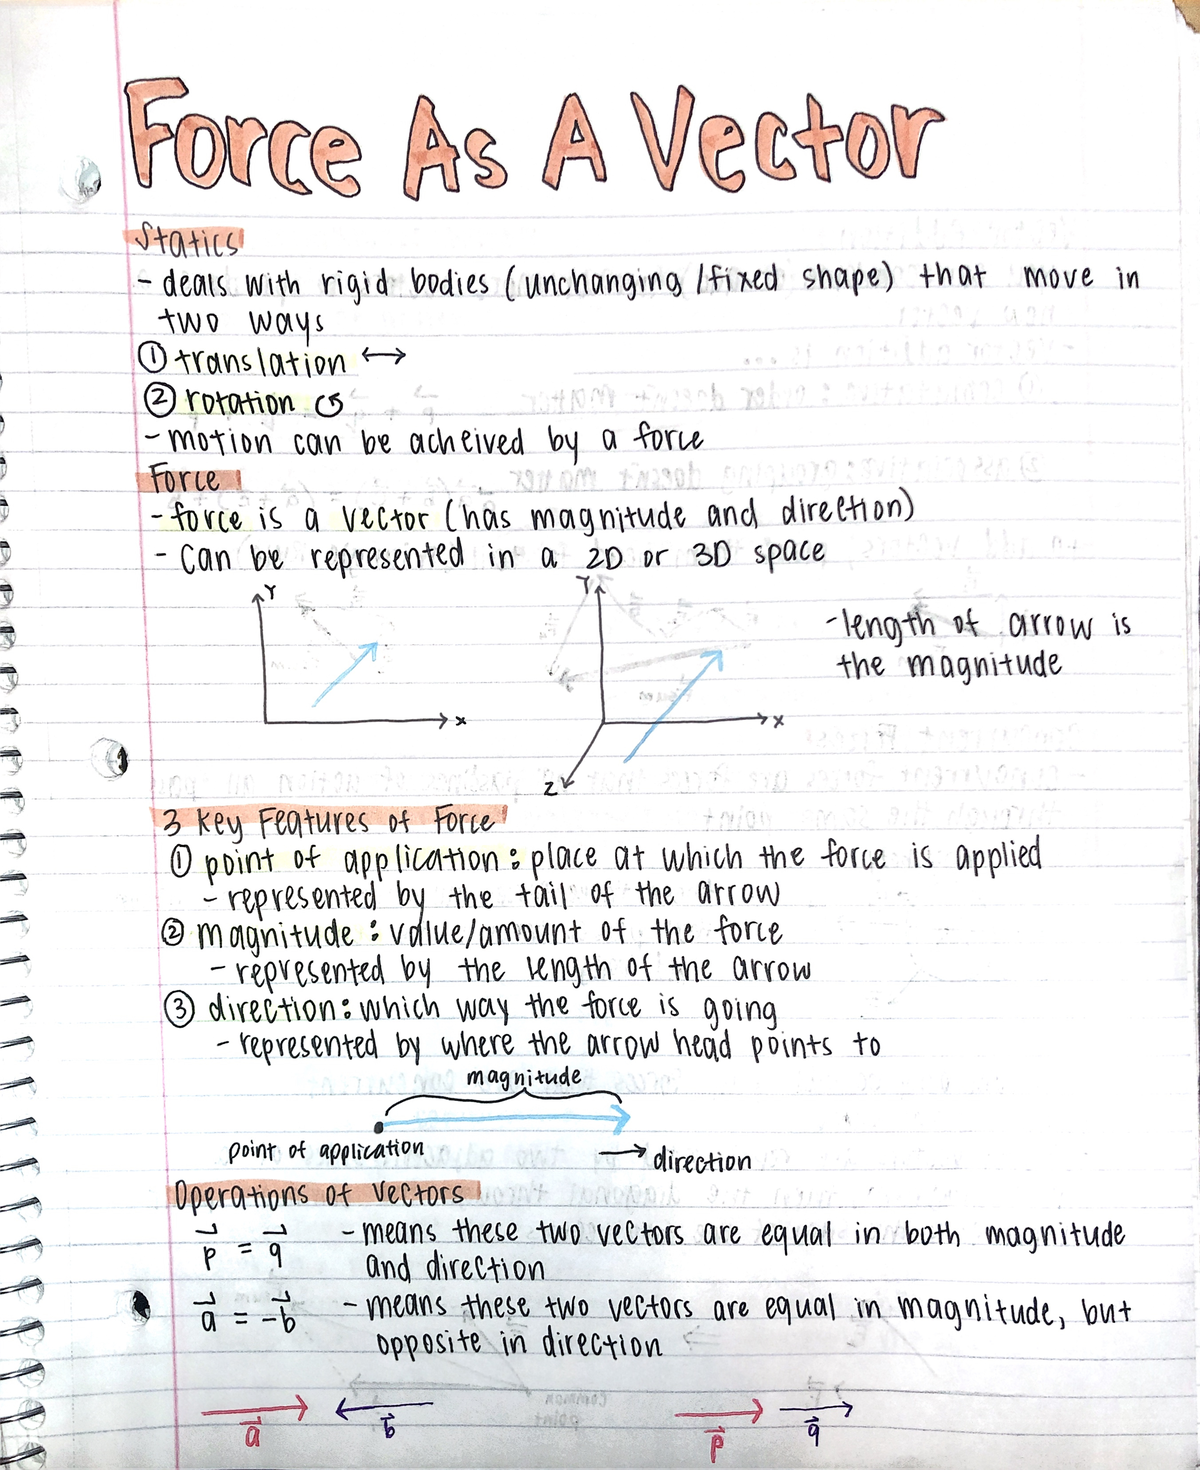 Force As A Vector
Statics
- deals with rigid bodies (unchanging /fixed shape) that move in
two ways
① translation ↔
② rotation ↺
- motion can be acheived by a force
Force
- force is a vector (has magnitude and direction)
- can be represented in a 2D or 3D space
Y
X
Y
X
Z
- length of arrow is
the magnitude
3 Key Features of Force
① point of application : place at which the force is applied
- represented by the tail of the arrow
② magnitude : value/amount of the force
- represented by the length of the arrow
③ direction : which way the force is going
- represented by where the arrow head points to
magnitude
point of application
→ direction
Operations of Vectors
p⃗ = q⃗ - means these two vectors are equal in both magnitude
and direction
a⃗ = -b⃗ - means these two vectors are equal in magnitude, but
opposite in direction
a⃗ b⃗ p⃗ q⃗